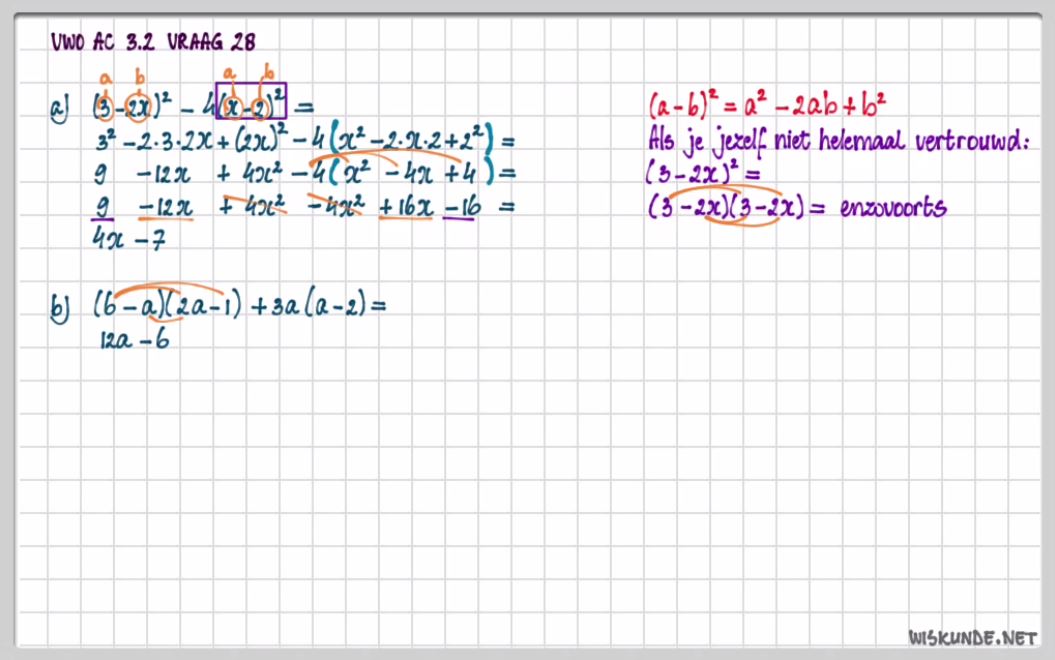 VWO AC 3.2 VRAAG 28
a b a b
a) (3-2x)² - 4(x-2)² =
3² - 2·3·2x + (2x)² - 4(x² - 2·x·2 + 2²) =
9 - 12x + 4x² - 4(x² - 4x + 4) =
9 - 12x + 4x² - 4x² + 16x - 16 =
4x - 7
b) (6-a)(2a-1) + 3a(a-2) =
12a - 6
(a-b)² = a² - 2ab + b²
Als je jezelf niet helemaal vertrouwd:
(3-2x)² =
(3-2x)(3-2x) = enzovoorts
WISKUNDE.NET